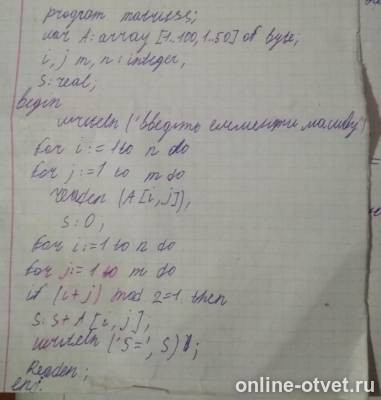 program matriss;
var A: array [1..100, 1..50] of byte;
i, j m, n: integer,
S: real;
begin
writeln ('введіть елементи масиву')
for i:= 1 to n do
for j:= 1 to m do
readen (A[i, j]),
S: 0,
for i:=1 to n do
for j:= 1 to m do
if (i+j) mod 2=1 then
S: S+A [i, j],
writeln ('S=', S);
Readen;
end.
online-otvet.ru